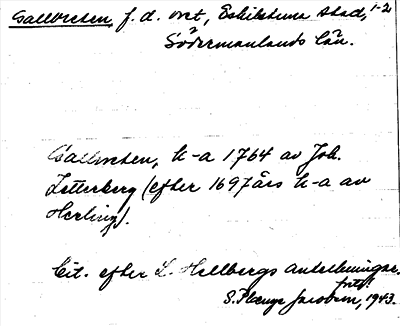 Galltresten, f. d. ort, Eskilstuna stad, 1-2
Södermanlands län.
Galltresten, k-a 1764 av Joh.
Zetterberg (efter 1697 års k-a av
Herling).
Cit. efter L. Hellbergs anteckningar.
S. Plenge Jacobsen, 1943.